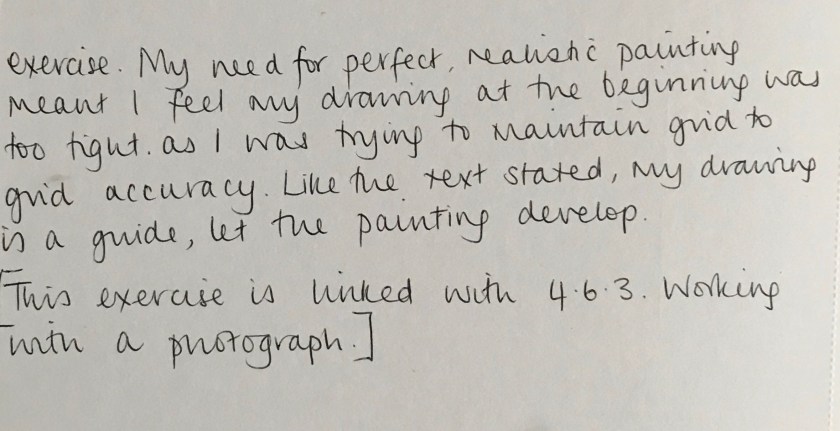 exercise. My need for perfect, realistic painting
meant I feel my drawing at the beginning was
too tight. as I was trying to maintain grid to
grid accuracy. Like the text stated, my drawing
is a guide, let the painting develop.
[This exercise is linked with 4.6.3. Working
with a photograph.]